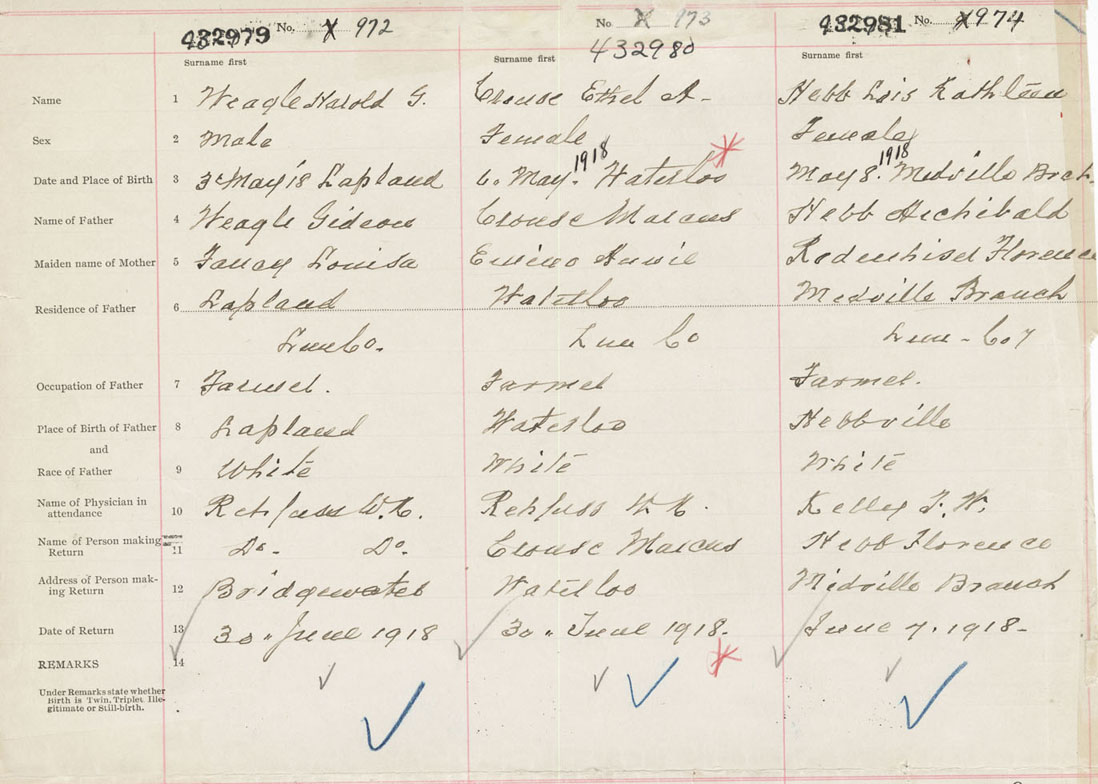 432979 No. X 972
No X 173
432981 No. X 974
432980
Surname first Surname first Surname first
Name 1 Weagle Harold G. Crouse Ethel A- Hebb Lois Kathleen
Sex 2 Male Female Female
1918 1918
Date and Place of Birth 3 3 May 18 Lapland 6. May. Waterloo May 8. Midville Brch.
Name of Father 4 Weagle Gideon Crouse Marcus Hebb Archibald
Maiden name of Mother 5 Fancy Louisa Annie Rodenhiser Florence
Residence of Father 6 Lapland Waterloo Midville Branch
Lun Co. Lun Co Lun - Coy
Occupation of Father 7 Farmer. Farmer Farmer.
Place of Birth of Father 8 Lapland Waterloo Hebbville
and
Race of Father 9 White White White
Name of Physician in
attendance 10 Rehfuss W.K. Rehfuss W K. Kelley F. W.
Name of Person making
Return 11 Do. Do. Crouse Marcus Hebb Florence
Address of Person mak-
ing Return 12 Bridgewater Waterloo Midville Branch
Date of Return 13 30 " June 1918 30 " June 1918. June 7. 1918-
REMARKS 14
Under Remarks state whether
Birth is Twin, Triplet Ille-
gitimate or Still-birth.